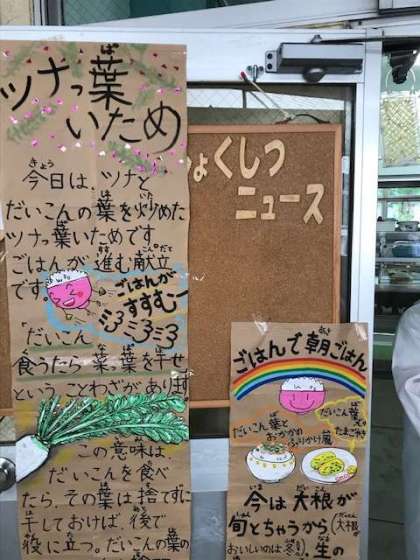 ツナっ葉
いため
今日は、ツナと
だいこんの葉を炒めた
ツナっ葉いためです
ごはんが進む献立
です。
ごはんが
すすむー
「だいこん
食うたら 菜っ葉を干せ
ということわざがあります
この意味は
だいこんを食べ
たら、その葉は捨てずに
干しておけば、後で
役に立つ。だいこんの葉の
ょくしつ
ニュース
ごはんで朝ごはん
だいこん葉と
おかかの
ふりかけ風
だいこん葉
たまごやき
今は大根が
旬とちゃうから
おいしいのは冬
生の